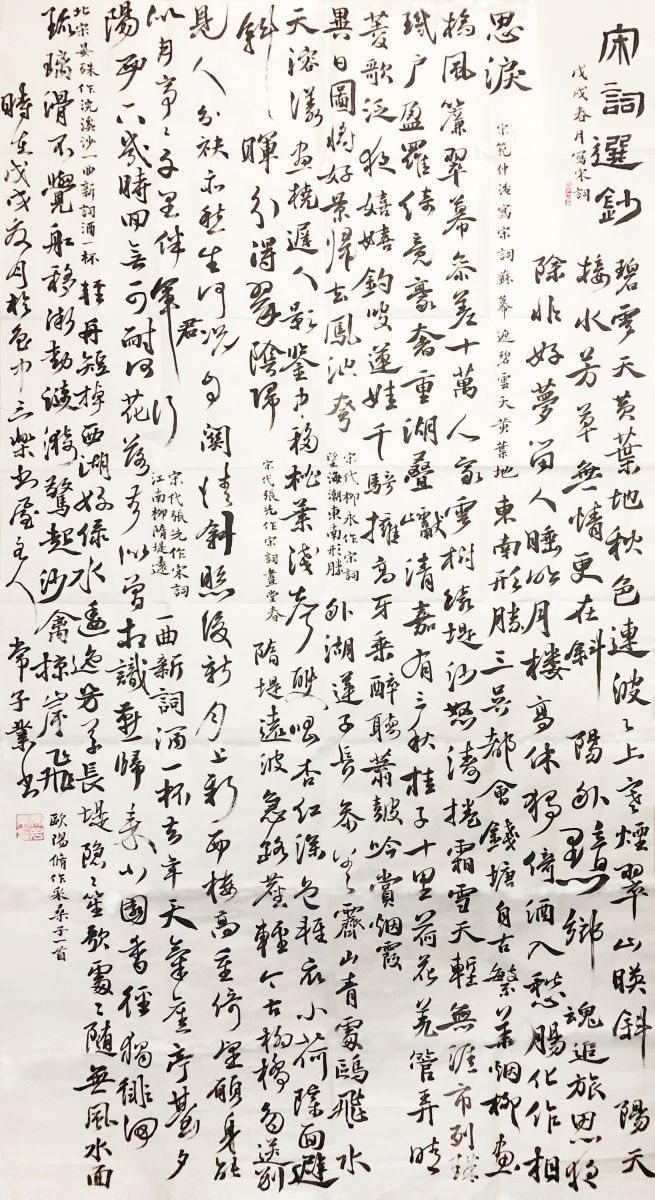 宋詞選鈔
戊戌春月寫宋詞
碧雲天黃葉地秋色連波ミ上寒煙翠山映斜陽天
接水芳草無情更在斜陽外黯鄉魂追旅思夜
除非好夢留人睡明月樓高休獨倚酒入愁腸化作相
思淚
宋范仲淹寫宋詞蘇幕遮碧雲天黃葉地
東南形勝三吳都會錢塘自古繁華烟柳畫
橋風簾翠幕參差十萬人家雲樹繞堤沙怒濤捲霜雪天塹無涯市列珠
璣戶盈羅綺競豪奢重湖疊巘清嘉有三秋桂子十里荷花羌管弄晴
菱歌泛夜嬉嬉釣叟蓮娃千騎擁高牙乘醉聽蕭鼓吟賞烟霞
異日圖將好景歸去鳳池夸
宋代柳永作宋詞
望海潮東南形勝
外湖蓮子長參差霽山青處鷗飛水
天溶漾畫橈遲人影鑒中移桃葉淺聲雙唱杏紅深色輕衣小荷障面避
斜暉分得翠陰歸
宋代張先作宋詞畫堂春
隋堤遠波急路塵輕今古柳橋多送別
見人分袂亦愁生何況自關情斜照後新月上西樓高重倚望願身能
似月亭ミ千里伴君行
宋代張先作宋詞
江南柳隋堤遠
一曲新詞酒一杯去年天氣舊亭臺夕
陽西下幾時回無可奈何花落去似曾相識燕歸來小園香徑獨徘徊
北宋晏殊作浣溪沙一曲新詞酒一杯
輕舟短棹西湖好綠水逶迤芳草長堤隱ミ笙歌處ミ隨無風水面
琉璃滑不覺船移微動漣漪驚起沙禽掠岸飛
歐陽脩作采桑子一首
時在戊戌春月於三樂書屋主人常子業書